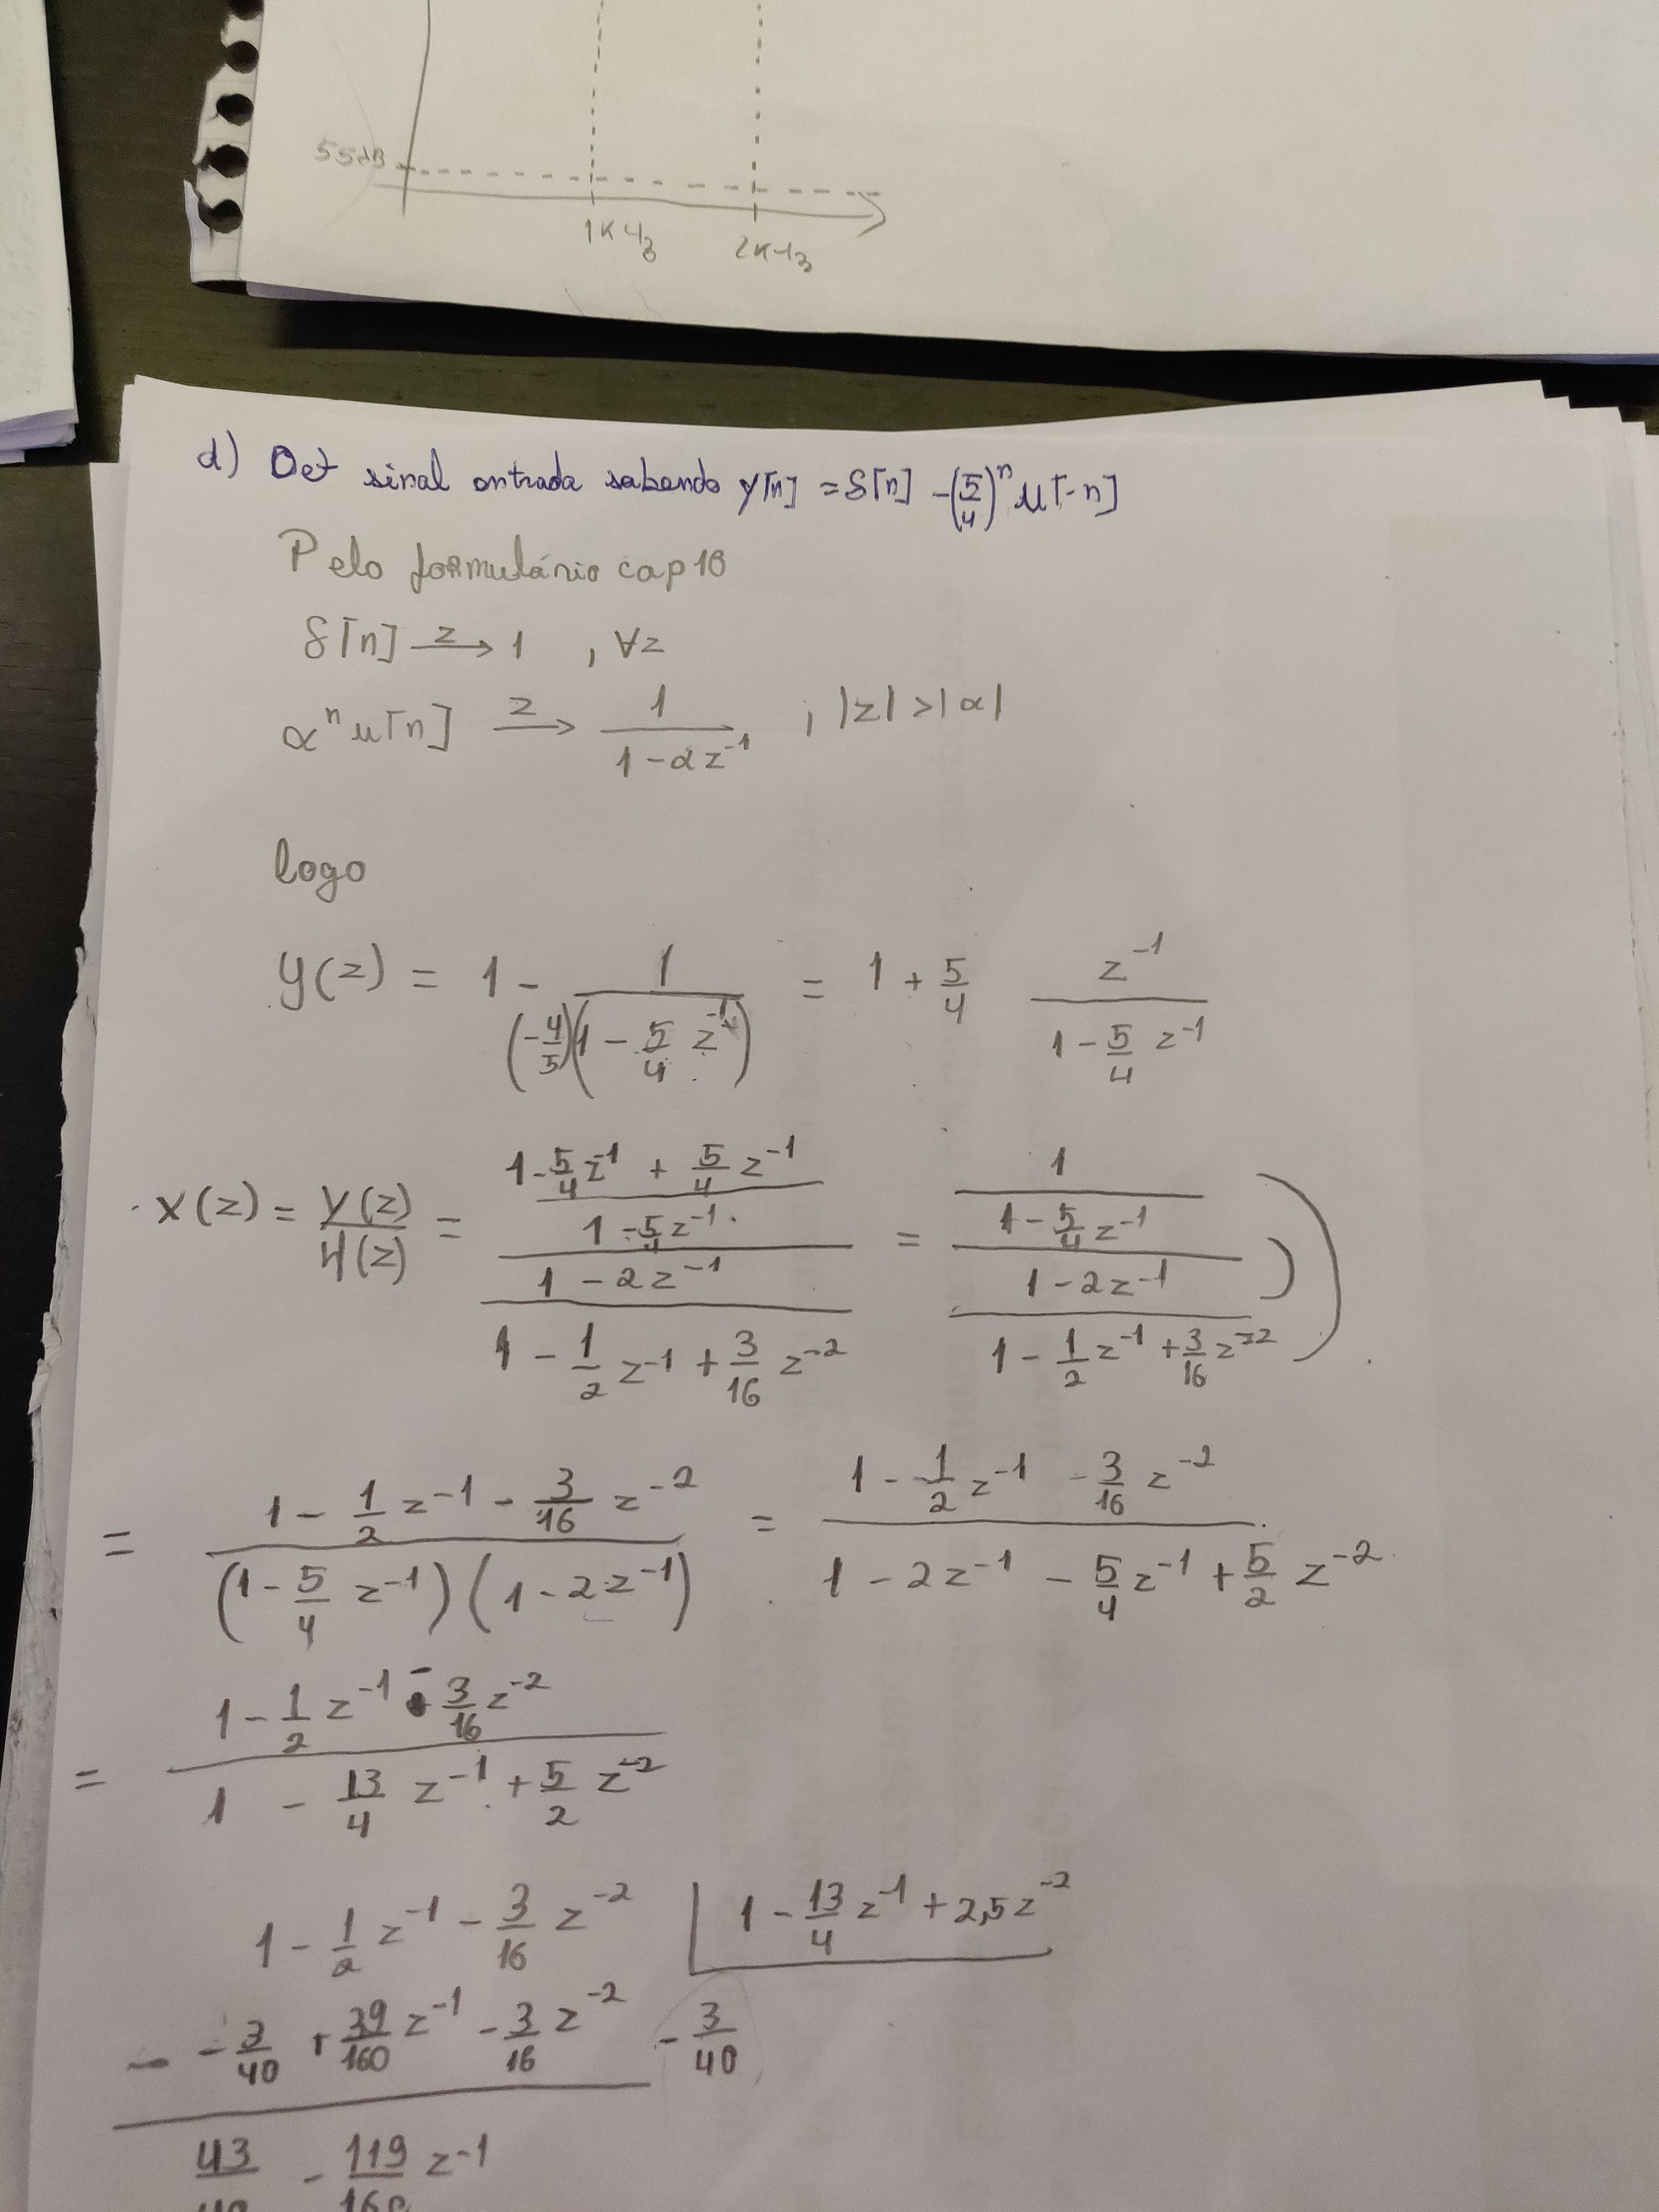 55dB
1KHz
2KHz
d) Det sinal entrada sabendo y[n] = δ[n] - (5/4)^n u[-n]
Pelo formulário cap 10
δ[n] —z→ 1 , ∀z
α^n u[n] —z→ 1/(1-αz^-1) , |z| > |α|
logo
Y(z) = 1 - 1/((-4/5)(1 - 5/4 z^-1)) = 1 + 5/4 z^-1/(1 - 5/4 z^-1)
X(z) = Y(z)/H(z) = ((1 - 5/4 z^-1 + 5/4 z^-1)/(1 - 5/4 z^-1))/((1 - 2z^-1)/(1 - 1/2 z^-1 + 3/16 z^-2)) = (1/(1 - 5/4 z^-1))/((1 - 2z^-1)/(1 - 1/2 z^-1 + 3/16 z^-2))
= (1 - 1/2 z^-1 - 3/16 z^-2)/((1 - 5/4 z^-1)(1 - 2z^-1)) = (1 - 1/2 z^-1 - 3/16 z^-2)/(1 - 2z^-1 - 5/4 z^-1 + 5/2 z^-2)
= (1 - 1/2 z^-1 - 3/16 z^-2)/(1 - 13/4 z^-1 + 5/2 z^-2)
1 - 1/2 z^-1 - 3/16 z^-2 | 1 - 13/4 z^-1 + 2,5z^-2
- -3/40 + 39/160 z^-1 - 3/16 z^-2 -3/40
43/40 - 119/160 z^-1